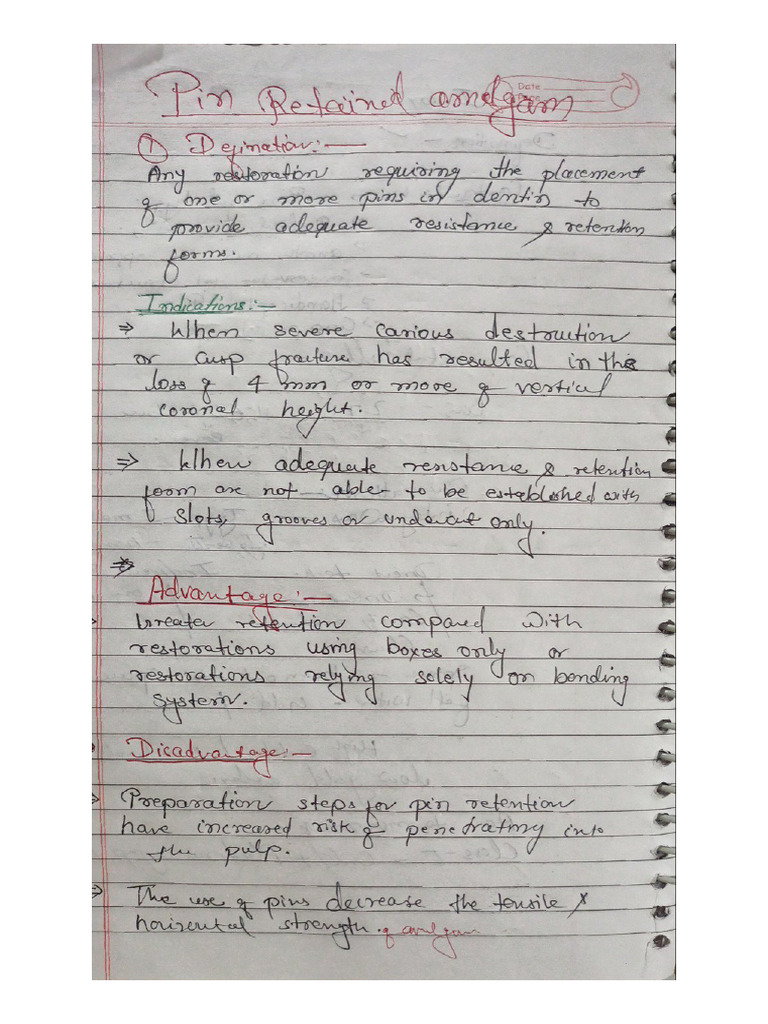 Pin Retained amalgam
Date
① Defination:-
Any restoration requiring the placement
of one or more pins in dentin to
provide adequate resistance & retention
forms.
Indications:-
⇒ When severe carious destruction
or cusp fracture has resulted in the
loss of 4 mm or more of vertical
coronal height.
⇒ When adequate resistance & retention
form are not able to be established with
slots, grooves or undercut only.
⇒
Advantage:-
Greater retention compared with
restorations using boxes only or
restorations relying solely on bonding
system.
Disadvantage:-
Preparation steps for pin retention
have increased risk of penetrating into
the pulp.
⇒ The use of pins decrease the tensile &
horizental strength. of amalgam